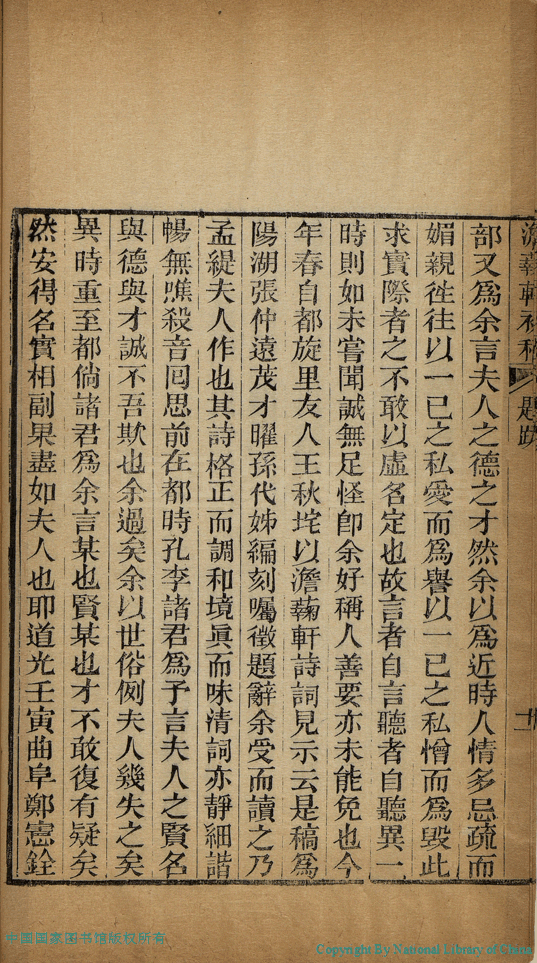 澹蘜軒初稿 題跋
部又為余言夫人之德之才然余以為近時人情多忌疏而
媚親徃往以一已之私愛而為譽以一已之私憎而為毀此
求實際者之不敢以虛名定也故言者自言聽者自聽異一
時則如未嘗聞誠無足怪卽余好稱人善要亦未能免也今
年春自都旋里友人王秋垞以澹蘜軒詩詞見示云是稿為
陽湖張仲遠茂才曜孫代姊編刻囑徵題辭余受而讀之乃
孟緹夫人作也其詩格正而調和境眞而味清詞亦靜細諧
暢無噍殺音囘思前在都時孔李諸君為予言夫人之賢名
與德與才誠不吾欺也余過矣余以世俗例夫人幾失之矣
異時重至都倘諸君為余言某也賢某也才不敢復有疑矣
然安得名實相副果盡如夫人也耶道光壬寅曲阜鄭憲銓
中國國家图书馆版权所有
Copyright By National Library of China